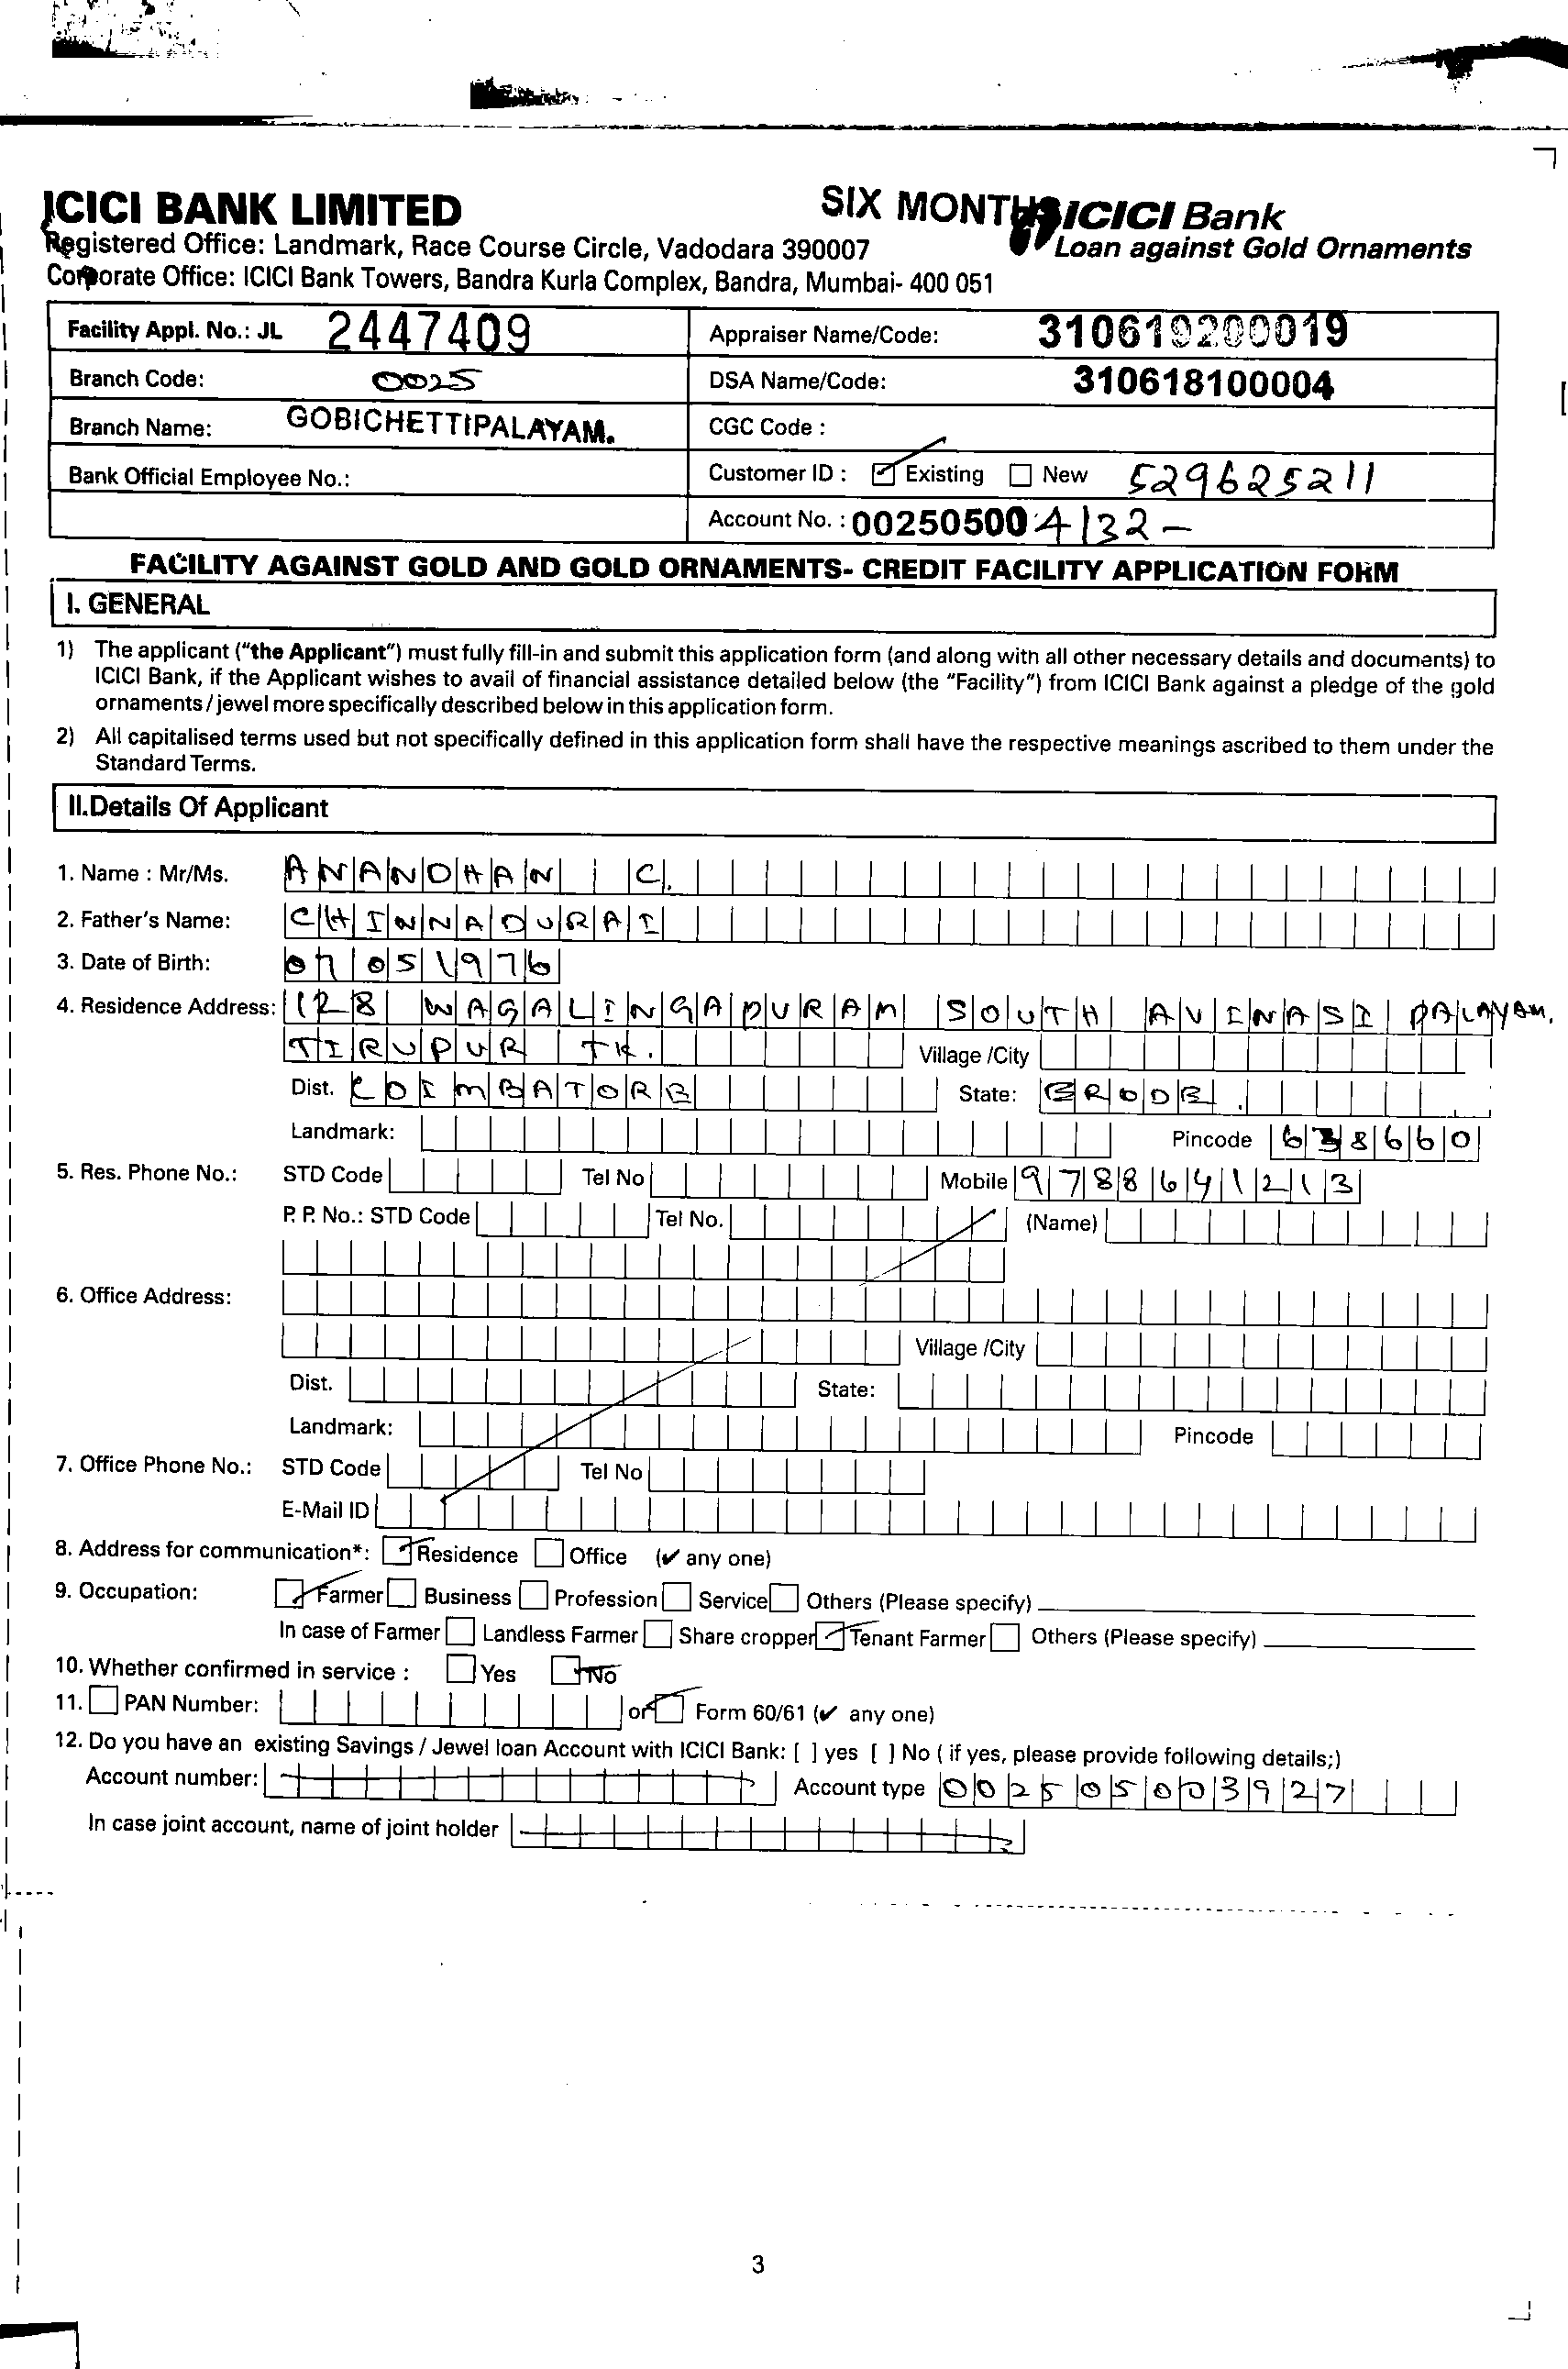 ICICI BANK LIMITED
SIX MONTHS
ICICI Bank
Registered Office: Landmark, Race Course Circle, Vadodara 390007
Loan against Gold Ornaments
Corporate Office: ICICI Bank Towers, Bandra Kurla Complex, Bandra, Mumbai- 400 051
Facility Appl. No.: JL 2447409
Appraiser Name/Code: 310619200019
Branch Code: 0025
DSA Name/Code: 310618100004
Branch Name: GOBICHETTIPALAYAM.
CGC Code :
Bank Official Employee No.:
Customer ID : Existing New 529625211
Account No. : 002505004132-
FACILITY AGAINST GOLD AND GOLD ORNAMENTS- CREDIT FACILITY APPLICATION FORM
I. GENERAL
1) The applicant ("the Applicant") must fully fill-in and submit this application form (and along with all other necessary details and documents) to
ICICI Bank, if the Applicant wishes to avail of financial assistance detailed below (the "Facility") from ICICI Bank against a pledge of the gold
ornaments/jewel more specifically described below in this application form.
2) All capitalised terms used but not specifically defined in this application form shall have the respective meanings ascribed to them under the
Standard Terms.
II.Details Of Applicant
1. Name : Mr/Ms. ANANDHAN C.
2. Father's Name: CHINNADURAI
3. Date of Birth: 07051976
4. Residence Address: 128 WAGALINGAPURAM SOUTH AVINASI PALAYAM,
TIRUPUR TK. Village /City
Dist. COIMBATORE State: ERODE.
Landmark: Pincode 638660
5. Res. Phone No.: STD Code Tel No Mobile 9788641213
P. P. No.: STD Code Tel No. (Name)
6. Office Address:
Village /City
Dist. State:
Landmark: Pincode
7. Office Phone No.: STD Code Tel No
E-Mail ID
8. Address for communication*: Residence Office (✔ any one)
9. Occupation: Farmer Business Profession Service Others (Please specify)
In case of Farmer Landless Farmer Share cropper Tenant Farmer Others (Please specify)
10. Whether confirmed in service : Yes No
11. PAN Number: or Form 60/61 (✔ any one)
12. Do you have an existing Savings / Jewel loan Account with ICICI Bank: [ ] yes [ ] No ( if yes, please provide following details;)
Account number: Account type 002505003927
In case joint account, name of joint holder
3